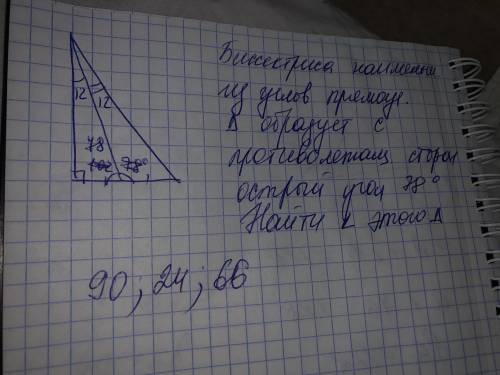 Биссектриса наименьш
из углов прямоуг.
Δ образует с
противолежащ. сторон
острый угол 78°
Найти ∠ этого Δ
12
12
78
102 78°
90; 24; 66